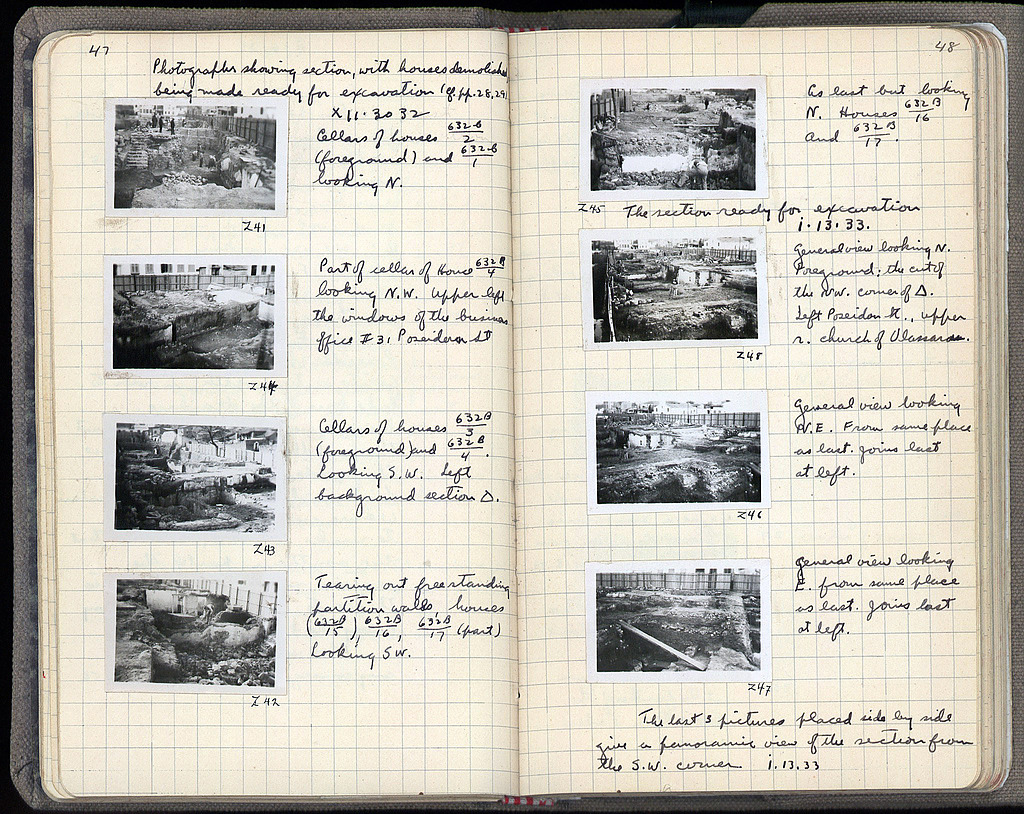 47
Photographs showing section, with houses demolished
being made ready for excavation (cf. pp. 28, 29)
X 11·30 32
Cellars of houses 632-B/2
(foreground) and 632-B/1
looking N.
Z41
Part of cellar of House 632 B/4
looking N.W. Upper left
the windows of the business
office # 31 Poseidon St
Z44
Cellars of houses 632B/3
(foreground) and 632B/4.
Looking S.W. Left
background section Δ.
Z43
Tearing out free standing
partition walls, houses
(632B/15), 632B/16, 632B/17 (part)
Looking SW.
Z42
48
As last but looking
N. Houses 632B/16
and 632B/17.
Z45
The section ready for excavation
i·13·33.
General view looking N.
Foreground; the cut of
the N.W. corner of Δ.
Left Poseidon St., upper
r. church of Vlassarou.
Z48
General view looking
N.E. From same place
as last. Joins last
at left.
Z46
General view looking
E. from same place
as last. Joins last
at left.
Z47
The last 3 pictures placed side by side
give a panoramic view of the section from
the S.W. corner i.13.33